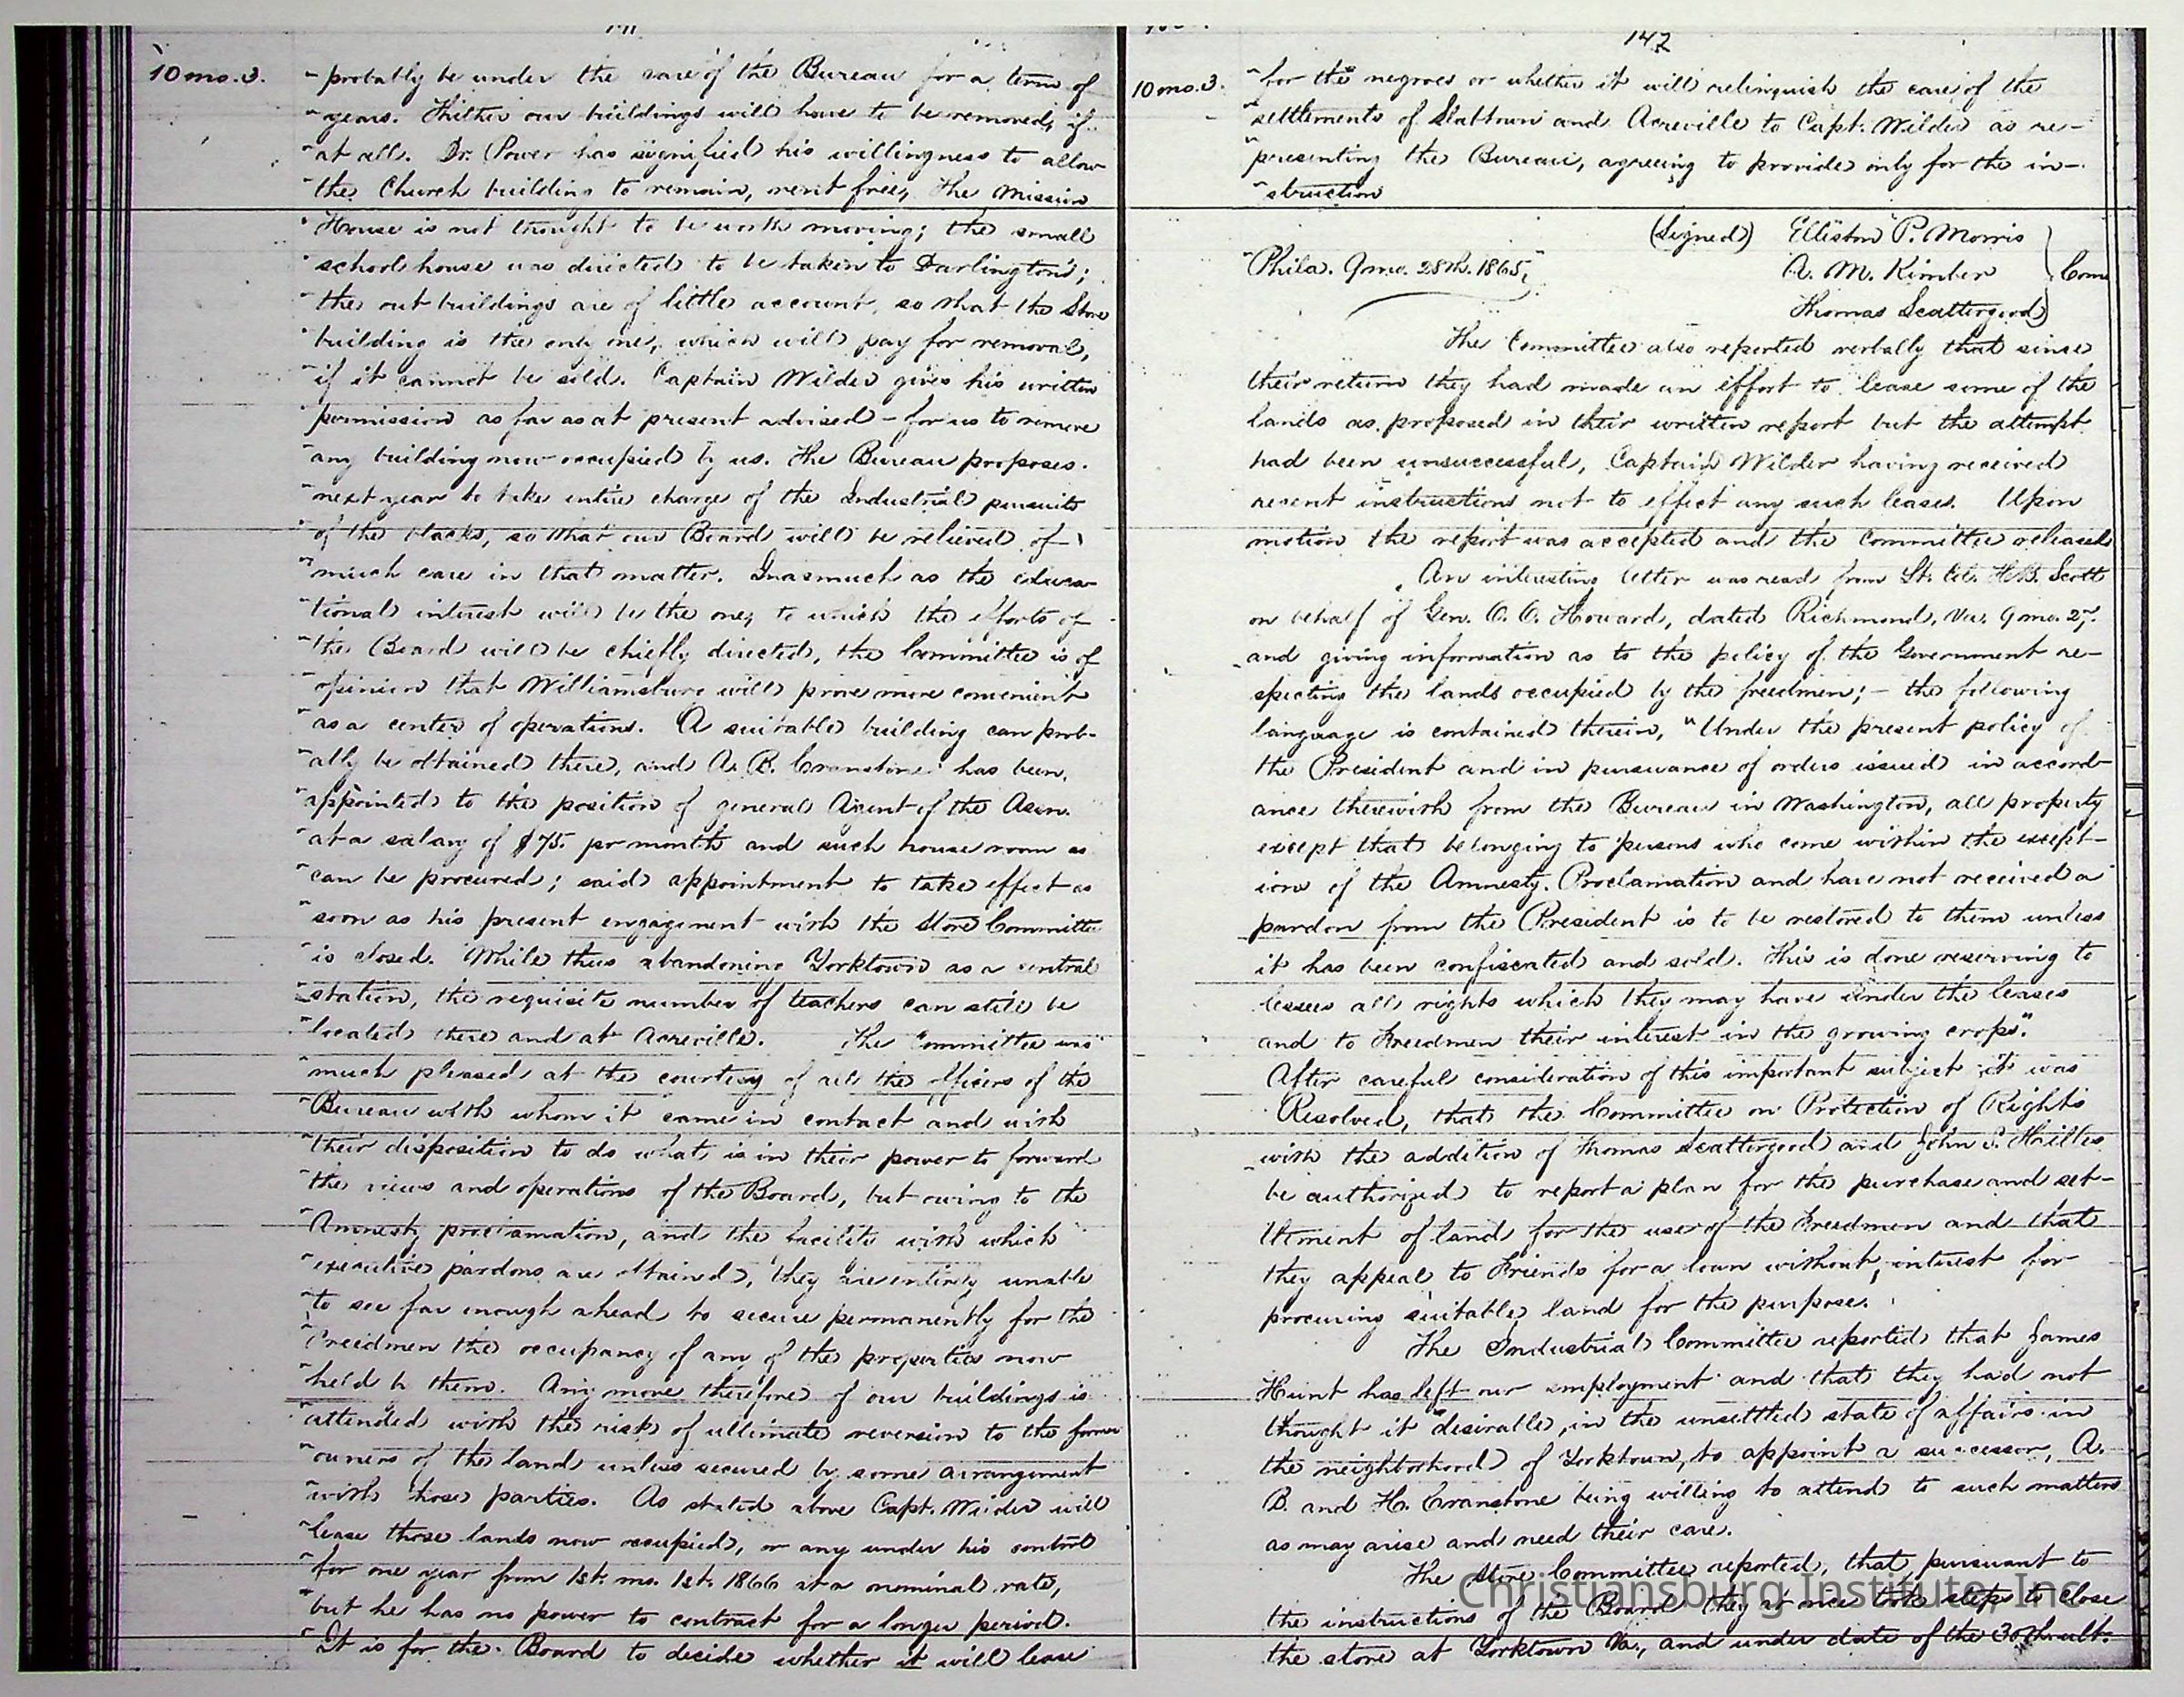 10 mo. 3.
"probably be under the care of the Bureau for a term of
"years. Thither our buildings will have to be removed, if
"at all. Dr. Power has signified his willingness to allow
"the Church building to remain, rent free, the Mission
"House is not thought to be worth moving; the small
"school house was directed to be taken to Darlington's;
"the out buildings are of little account, so that the Store
"building is the only one, which will pay for removal,
"if it cannot be sold. Captain Wilder gives his written
"permission as far as at present advised – for us to remove
"any building now occupied by us. The Bureau proposes
"next year to take entire charge of the Industrial pursuits
"of the blacks, so that our Board will be relieved of
"much care in that matter. Inasmuch as the educa-
"tional interest will be the one, to which the efforts of
"the Board will be chiefly directed, the Committee is of
"opinion that Williamsburg will prove more convenient
"as a center of operations. A suitable building can prob-
"ably be obtained there, and A. B. Cranstone has been
"appointed to the position of general Agent of the Assn.
"at a salary of $75. per month and such house room as
"can be procured; said appointment to take effect as
"soon as his present engagement with the Store Committee
"is closed. While thus abandoning Yorktown as a central
"station, the requisite number of teachers can still be
"located there and at Acreville. The Committee was
"much pleased at the courtesy of all the officers of the
"Bureau with whom it came in contact and with
"their disposition to do what is in their power to forward
"the views and operations of the Board, but owing to the
"Amnesty proclamation, and the facility with which
"executive pardons are obtained, they are entirely unable
"to see far enough ahead to secure permanently for the
"Freedmen the occupancy of any of the properties now
"held by them. Any move therefore of our buildings is
"attended with the risk of ultimate reversion to the former
"owners of the land unless secured by some arrangement
"with those parties. As stated above Capt. Wilder will
"lease those lands now occupied, or any under his control
"for one year from 1st. mo. 1st. 1866 at a nominal rate,
"but he has no power to contract for a longer period.
"It is for the Board to decide whether it will lease
147
10 mo. 3.
"for the negroes or whether it will relinquish the care of the
"settlements of Slabtown and Acreville to Capt. Wilder as re-
"presenting the Bureau, agreeing to provide only for the in-
"struction
(Signed) Elliston P. Morris
"Phila. 9 mo. 28th. 1865," A. M. Kimber Com
Thomas Scattergood
The Committee also reported verbally that since
their return they had made an effort to lease some of the
lands as proposed in their written report but the attempt
had been unsuccessful, Captain Wilder having received
recent instructions not to effect any such leases. Upon
motion the report was accepted and the Committee released
An interesting letter was read from Lt. Col. H. B. Scott
on behalf of Gen. O. O. Howard, dated Richmond, Va. 9 mo. 27.
and giving information as to the policy of the Government re-
specting the lands occupied by the freedmen; – the following
language is contained therein, "Under the present policy of
the President and in pursuance of orders issued in accord-
ance therewith from the Bureau in Washington, all property
except that belonging to persons who come within the except-
ions of the Amnesty Proclamation and have not received a
pardon from the President is to be restored to them unless
it has been confiscated and sold. This is done reserving to
lessees all rights which they may have under the leases
and to Freedmen their interest in the growing crops".
After careful consideration of this important subject it was
Resolved, that the Committee on Protection of Rights
with the addition of Thomas Scattergood and John S. Hilles
be authorized to report a plan for the purchase and set-
tlement of land for the use of the Freedmen and that
they appeal to Friends for a loan without interest for
procuring suitable land for the purpose.
The Industrial Committee reported that James
Hunt has left our employment and that they had not
thought it desirable, in the unsettled state of affairs in
the neighborhood of Yorktown, to appoint a successor, A.
B. and H. Cranstone being willing to attend to such matters
as may arise and need their care.
The Store Committee reported, that pursuant to
the instructions of the Board they at once took steps to close
the store at Yorktown Va., and under date of the 30th. ult.
Christiansburg Institute, Inc.